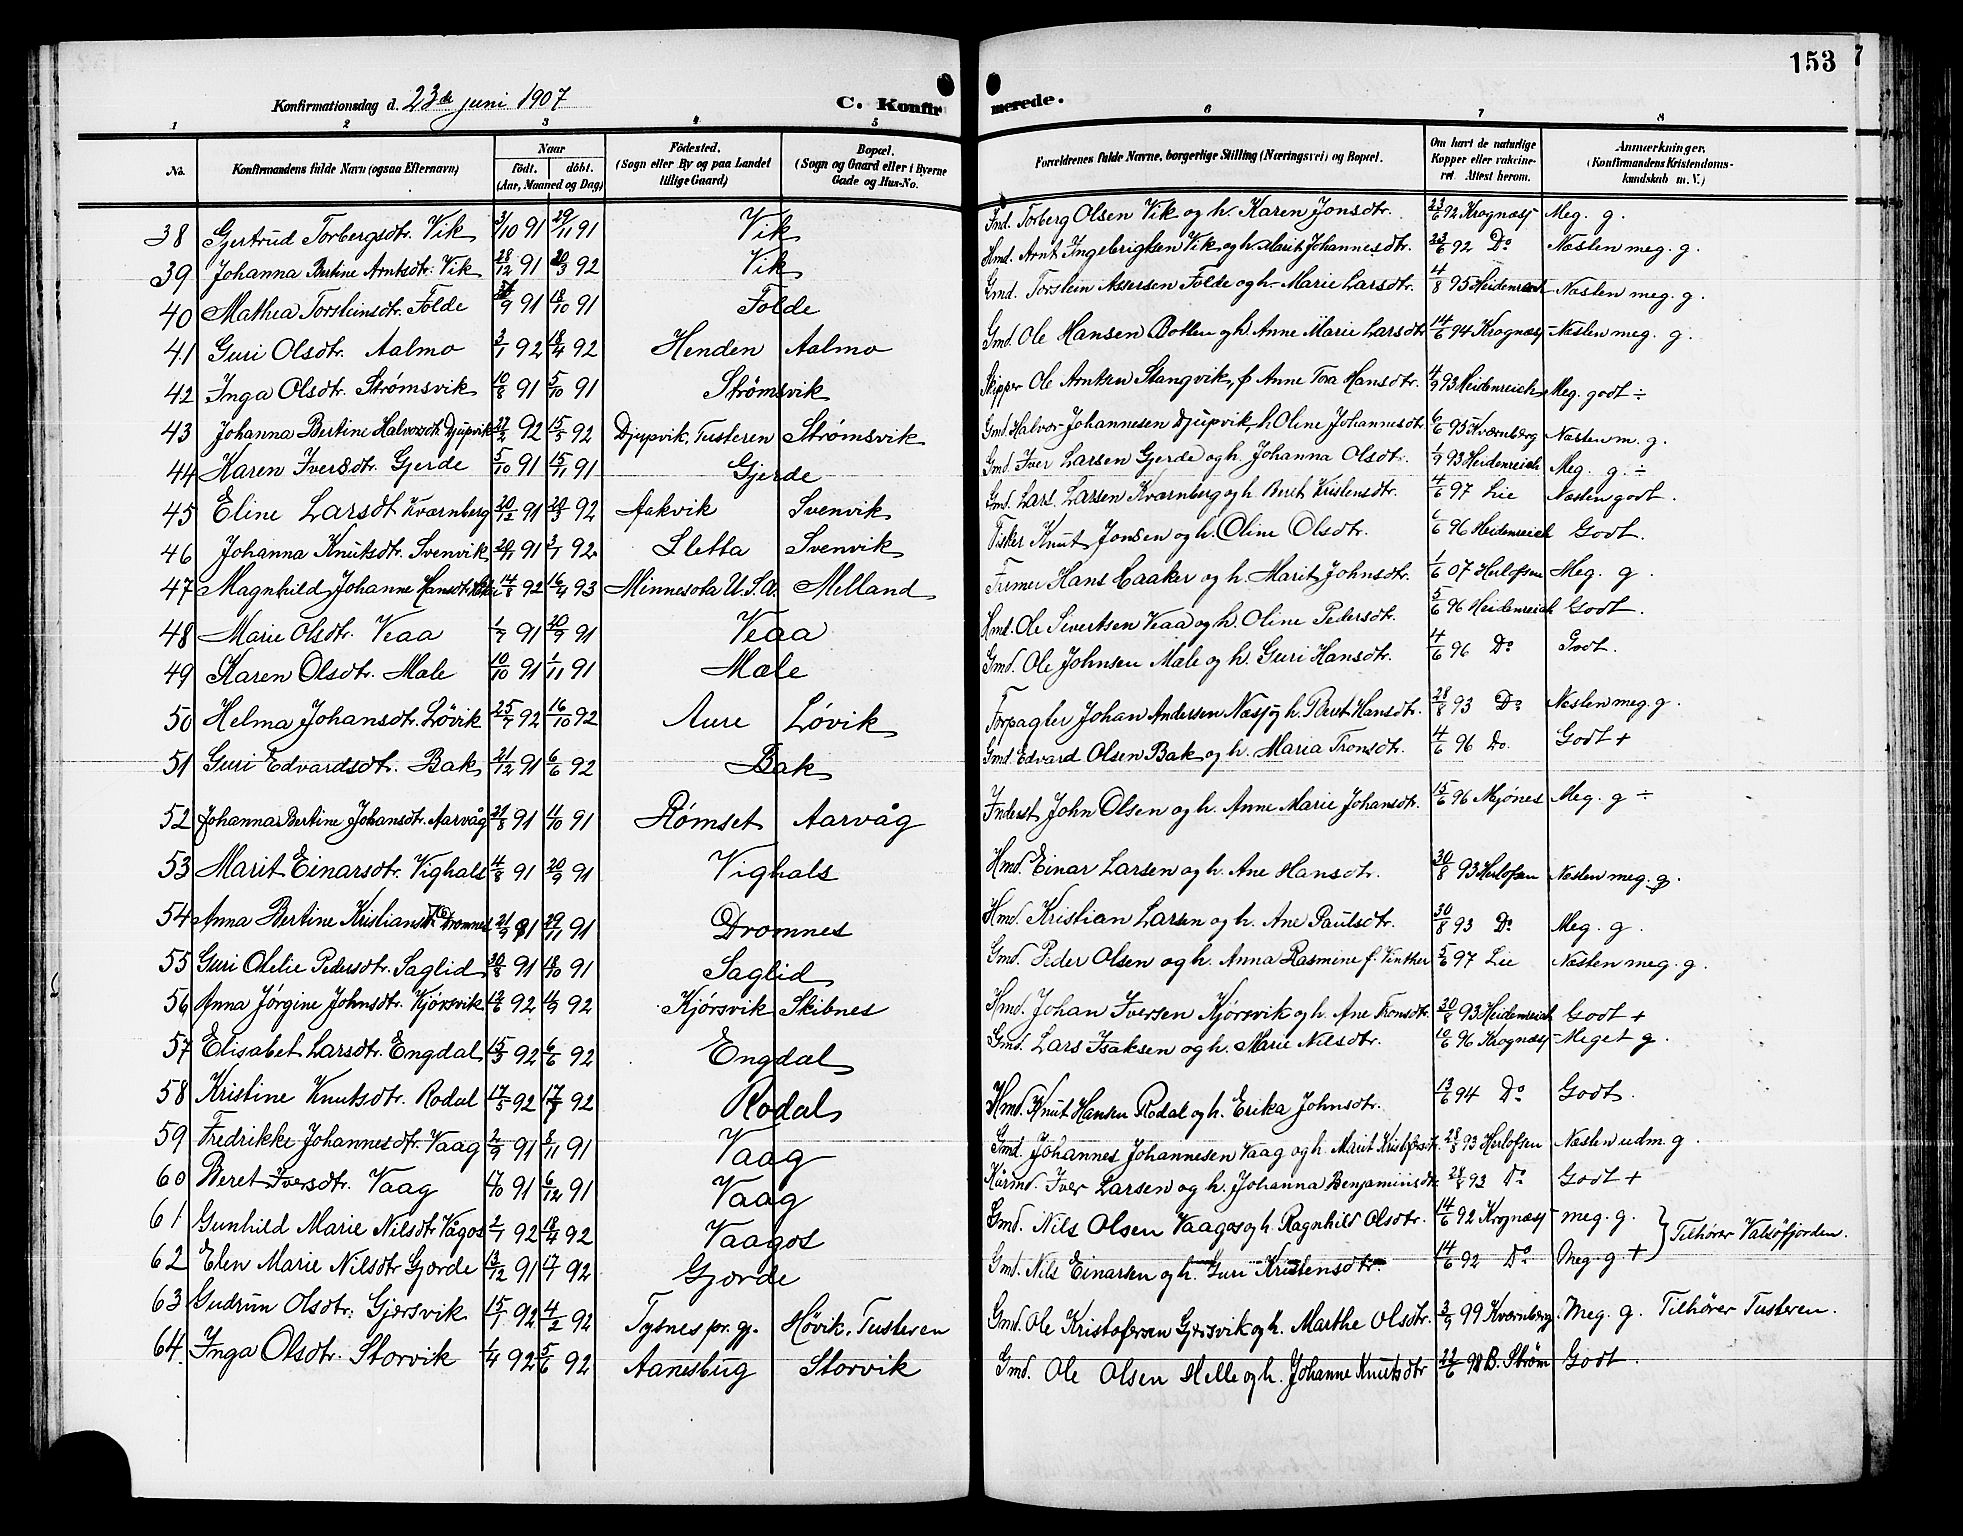 153
7
Konfirmationsdag d. 23de juni 1907
C. Konfirmerede.
1 2 3 4 5 6 7 8
No.
Konfirmandens fulde Navn (ogsaa Efternavn)
Naar
födt. döbt.
(Aar, Maaned og Dag)
Födested.
(Sogn eller By og paa Landet
tillige Gaard)
Bopæl.
(Sogn og Gaard eller i Byerne
Gade og Hus-No.
Forældrenes fulde Navne, borgerlige Stilling (Næringsvei) og Bopæl.
Om havt de naturlige
Kopper eller vakcine-
ret Attest herom.
Anmærkninger.
(Konfirmandens Kristendoms-
kundskab m. V.)
38 Gjertrud Torbergsdtr. Vik 3/10 91 29/11 91 Vik Ind. Torberg Olsen Vik og h. Karen Jonsdtr. 23/6 92 Krognæs Meg. g.
39 Johanna Bertine Arntsdtr. Vik 28/12 91 20/3 92 Vik Hmd. Arnt Ingebrigtsen Vik og h. Marit Johannesdtr. 23/6 92 Do Næsten meg. g.
40 Mathea Torsteinsdtr. Folde 9 91 18/10 91 Folde Gmd. Torstein Assersen Folde og h. Marie Larsdtr. 4/8 95 Heidenreich Næsten meg. g.
41 Guri Olsdtr. Aalmo 3/1 92 18/4 92 Henden Aalmo Gmd. Ole Hansen Botten og h. Anne Marie Larsdtr 14/6 94 Krognæs Næsten meg. g.
42 Inga Olsdtr. Strömsvik 10/8 91 5/10 91 Strömsvik Skipper Ole Arntsen Stangvik, f Anne Tora Hansdtr. 4/9 93 Heidenreich Meg. godt ÷
43 Johanna Bertine Halvorsdtr. Djupvik 27/2 92 15/5 92 Djupvik, Tusteren Strömsvik Gmd. Halvor Johannesen Djupvik, h Oline Johannesdtr 6/6 95 Kværnberg Næsten m. g.
44 Karen Iversdtr. Gjerde 5/10 91 15/11 91 Gjerde Gmd. Iver Larsen Gjerde og h. Johanna Olsdtr. 4/9 93 Heidenreich Meg. g. ÷
45 Eline Larsdt Kværnberg 20/12 91 20/3 92 Aakvik Svenvik Gmd. Lars Larsen Kværnberg og h. Berit Kristensdtr. 4/6 97 Lie Næsten godt.
46 Johanna Knutsdtr. Svenvik 20/11 91 3/1 92 Sletta Svenvik Fisker Knut Jonsen og h. Oline Olsdtr. 6/6 96 Heidenreich Godt.
47 Magnhild Johanne Hansdt 14/8 92 16/4 93 Minnesota U.S.A. Melland Farmer Hans Caaker og h. Marit Johnsdtr. 1/6 07 Herlofsen Meg. g.
48 Marie Olsdtr. Veaa 1/7 91 20/9 91 Veaa Hmd. Ole Sivertsen Veaa og h. Oline Pedersdtr. 5/6 96 Heidenreich Godt.
49 Karen Olsdtr. Mæle 10/10 91 1/11 91 Mæle Gmd. Ole Johnsen Mæle og h. Guri Hansdtr. 4/6 96 Do Godt.
50 Helma Johansdtr. Lövik 25/7 92 16/10 92 Aure Lövik Forpagter Johan Andersen Næs og h. Berit Hansdtr. 28/8 93 Do Næsten meg. g.
51 Guri Edvardsdtr. Bak 21/12 91 6/6 92 Bak Gmd. Edvard Olsen Bak og h. Maria Tronsdtr. 4/6 96 Do. Godt +
52 Johanna Bertine Johansdtr. Aarvåg 21/8 91 4/10 91 Römset Aarvåg Inderst John Olsen og h. Anne Marie Johansdtr. 15/6 96 Mjönes Meg. g ÷
53 Marit Einarsdtr. Vighals 4/8 91 20/9 91 Vighals Hmd. Einar Larsen og h. Ane Hansdtr. 30/8 93 Herlofsen Næsten meg. g.
54 Anna Bertine Kristiansdtr Dromnes 21/9 91 29/11 91 Dromnes Hmd. Kristian Larsen og h. Ane Paulsdtr. 30/8 93 Do Meg. g.
55 Guri Ovelie Pedersdtr. Saglid 30/8 91 18/10 91 Saglid Gmd. Peder Olsen og h. Anna Rasmine f. Vinther 5/6 97 Lie Næsten meg. g.
56 Anna Jörgine Johnsdtr. Kjörsvik 12/6 92 4/9 92 Kjörsvik Skibnes Hmd. Johan Iversen Kjörsvik og h. Ane Tronsdtr. 30/8 93 Heidenreich Godt +
57 Elisabet Larsdtr. Engdal 15/3 92 6/6 92 Engdal Gmd. Lars Isaksen og h. Marie Nilsdtr. 10/6 96 Krognæs Meget g.
58 Kristine Knutsdtr. Rodal 17/5 92 17/7 92 Rodal Hmd. Knut Hansen Rodal og h. Erika Johnsdtr. 13/6 94 Do Godt.
59 Fredrikke Johannesdtr. Vaag 2/9 91 8/11 91 Vaag Gmd. Johannes Johannesen Vaag og h. Marit Kristofersdtr. 28/8 93 Herlofsen Næsten udm. g.
60 Beret Iversdtr. Vaag 4/10 91 6/12 91 Vaag Kårmd. Iver Larsen og h. Johanna Benjaminsdtr. 28/8 93 Do Godt +
61 Gunhild Marie Nilsdtr Vågos 2/1 92 18/4 92 Vaagos Gmd. Nils Olsen Vaagos og h. Ragnhild Olsdtr. 14/6 92 Krognæs meg. g. } Tilhörer Valsöfjorden.
62 Elen Marie Nilsdtr Gjærde 13/12 91 17/4 92 Gjærde Gmd. Nils Einarsen og h. Guri Kristensdtr. 14/6 92 Do Meg. g +
63 Gudrun Olsdtr. Gjersvik 15/1 92 4/2 92 Tysnes pr. gj. Hövik, Tusteren Gmd. Ole Kristofersen Gjersvik og h. Marthe Olsdtr. 3/9 99 Kværnberg Meg. g. Tilhörer Tusteren.
64. Inga Olsdtr. Storvik 1/4 92 5/6 92 Aanesbug Storvik Gmd. Ole Olsen Melle og h. Johanne Knutsdtr 22/6 98 B. Ström Godt.